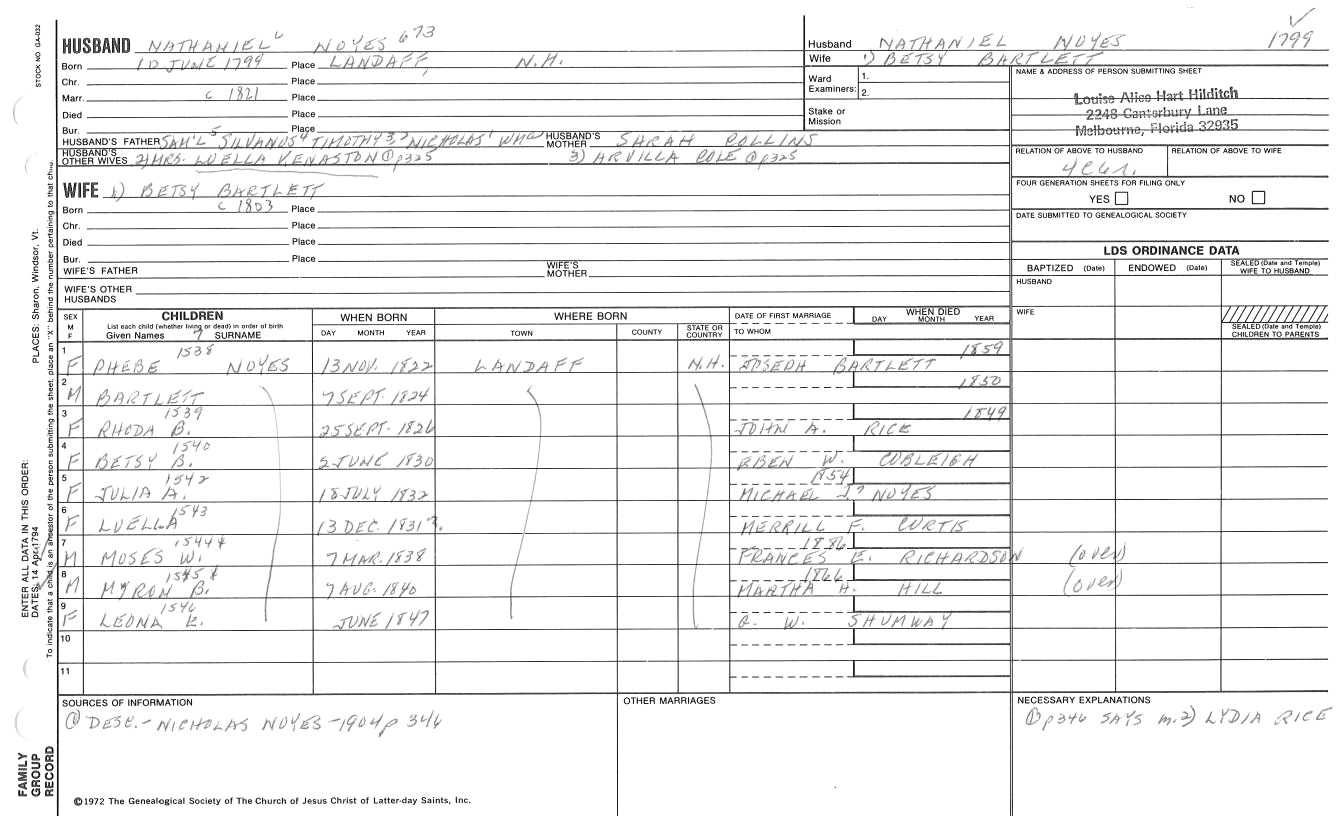 STOCK NO GA-032
HUSBAND NATHANIEL⁶ NOYES 673
Born 10 JUNE 1799 Place LANDAFF, N.H.
Chr. Place
Marr. c 1821 Place
Died Place
Bur. Place
HUSBAND'S FATHER SAM'L⁵ SILVANUS⁴ TIMOTHY³,² NICHOLAS¹ Wm HUSBAND'S MOTHER SARAH COLLINS
HUSBAND'S OTHER WIVES 2) MRS. LUELLA KENASTON @p325 3) ARVILLA COLE @p325
WIFE 1) BETSY BARTLETT
Born c 1803 Place
Chr. Place
Died Place
Bur. Place
WIFE'S FATHER WIFE'S MOTHER
WIFE'S OTHER HUSBANDS
Husband NATHANIEL NOYES 1799
Wife 1) BETSY BARTLETT
Ward Examiners: 1. 2.
Stake or Mission
NAME & ADDRESS OF PERSON SUBMITTING SHEET
Louise Alice Hart Hilditch
2248 Canterbury Lane
Melbourne, Florida 32935
RELATION OF ABOVE TO HUSBAND RELATION OF ABOVE TO WIFE
FOUR GENERATION SHEETS FOR FILING ONLY
YES NO
DATE SUBMITTED TO GENEALOGICAL SOCIETY
LDS ORDINANCE DATA
BAPTIZED (Date) ENDOWED (Date) SEALED (Date and Temple) WIFE TO HUSBAND
HUSBAND
WIFE
SEALED (Date and Temple) CHILDREN TO PARENTS
SEX M F CHILDREN WHEN BORN WHERE BORN DATE OF FIRST MARRIAGE WHEN DIED
List each child (whether living or dead) in order of birth DAY MONTH YEAR
Given Names 7 SURNAME DAY MONTH YEAR TOWN COUNTY STATE OR COUNTRY TO WHOM
1 1538 1859
F PHEBE NOYES 13 NOV. 1822 LANDAFF N.H. JOSEPH BARTLETT
2 1850
M BARTLETT 7 SEPT 1824
3 1539 1849
F RHODA B. 25 SEPT. 1826 JOHN A. RICE
4 1540
F BETSY B. 5 JUNE 1830 EBEN W. CUBLEIGH
5 1542 1854
F JULIA A. 18 JULY 1832 MICHAEL J.? NOYES
6 1543
F LUELLA 13 DEC. 1831?. MERRILL F. CURTIS
7 1544+ 1886
M MOSES W. 7 MAR. 1838 FRANCES E. RICHARDSON (over)
8 1545+ 1866
M MYRON B. 7 AUG. 1840 MARTHA H. HILL (over)
9 1546
F LEONA E. JUNE 1847 C. W. SHUMWAY
10
11
SOURCES OF INFORMATION
① DESC. - NICHOLAS NOYES - 1904 p 346
OTHER MARRIAGES
NECESSARY EXPLANATIONS
① p346 SAYS m. 2) LYDIA RICE
©1972 The Genealogical Society of The Church of Jesus Christ of Latter-day Saints, Inc.
FAMILY GROUP RECORD
ENTER ALL DATA IN THIS ORDER:
DATES: 14 Apr 1794
PLACES: Sharon, Windsor, Vt.
To indicate that a child is an ancestor of the person submitting the sheet, place an "X" behind the number pertaining to that child.